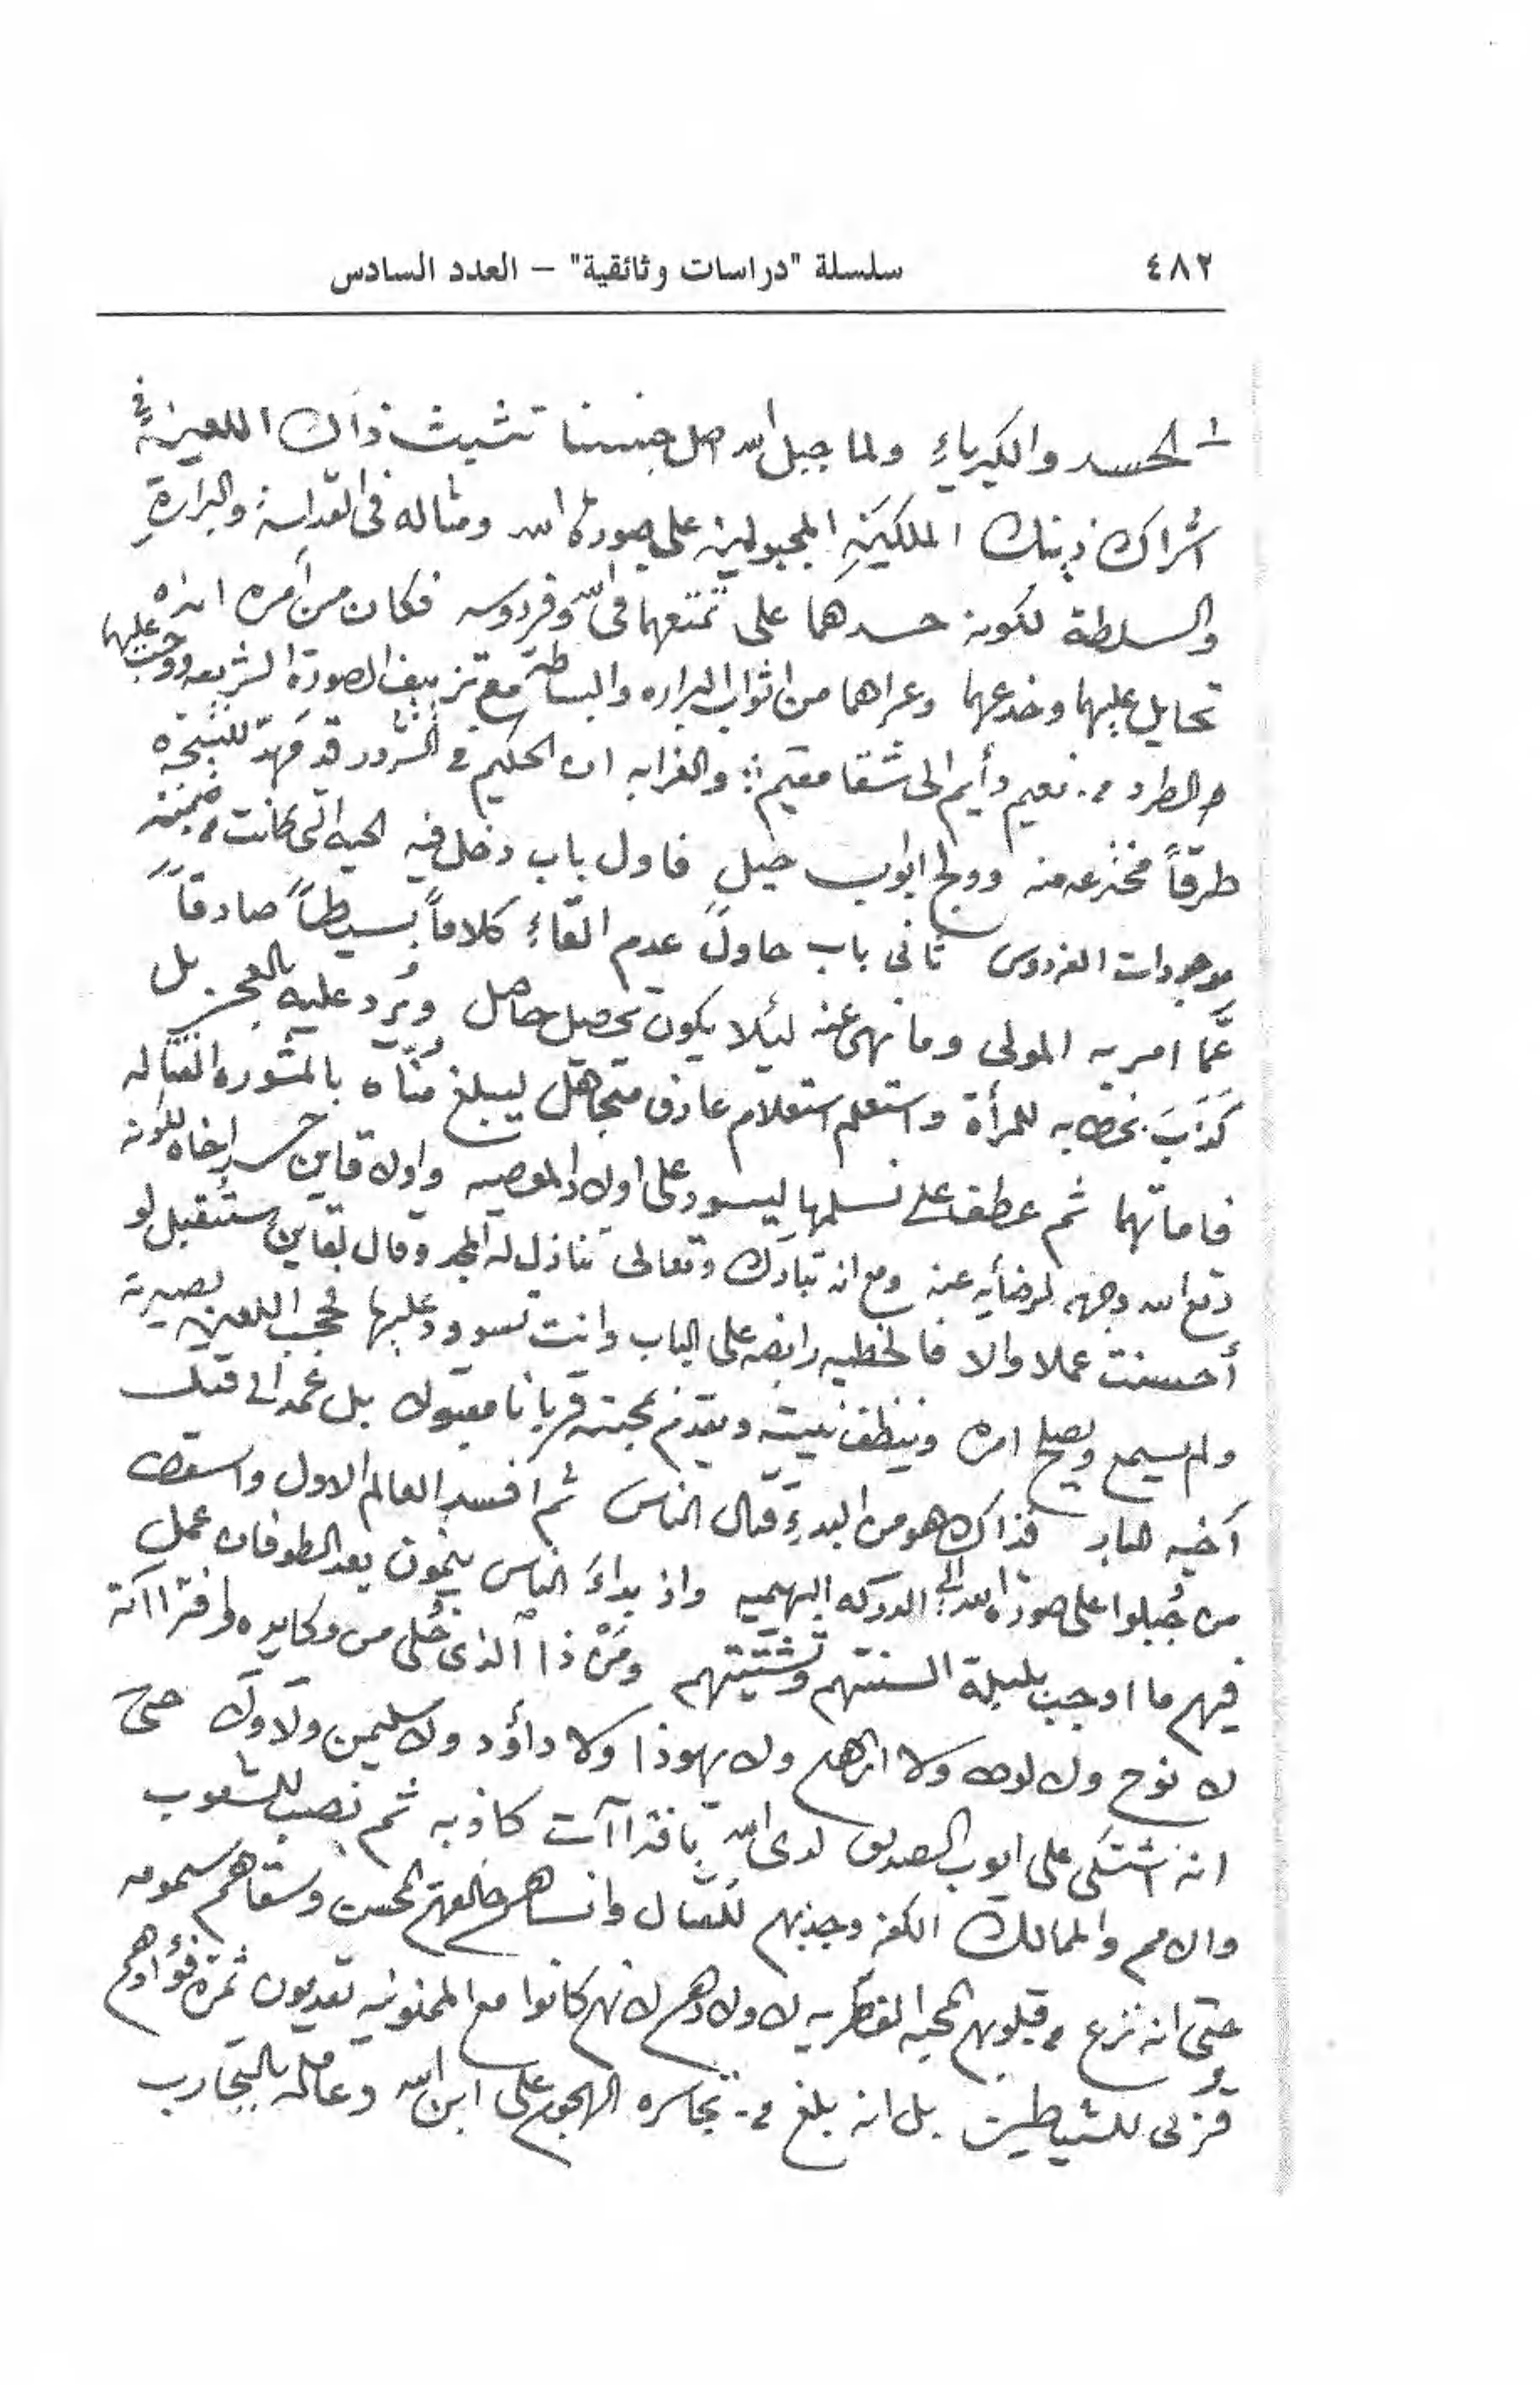 ٤٨٢ سلسلة "دراسات وثائقية" – العدد السادس
الحسد والكبرياءِ ولما جبل الله اصل جنسنا تشبث ذاك اللعين في
اشراك ذينك الملكَين المجبولين على صورة الله ومثاله في القداسة والبرارةِ
والسلطة لكونه حسدهما على تمتعهما في الله وفردوسه فكان من أمره انه
تحايل عليهما وخدعهما وعراهما من اثواب البراره والبساطة مع تزييف الصورة الشريفه ووجب عليهما
الطرد من نعيم دأيم الى شقا مقيم والغرابه ان الحكيم في الشرور قد مهدّ
طرقاً مخترعه منه وولج ابواب حيلٍ فاول باب دخل فيه الحيه التي كانت من
موجودات الفردوس ثانى باب حاول عدم القاءِ كلاماً بسيطاً صادقاً
عَّما امر به المولى وما نهى عنه ليئلا يكون تحصيل حاصل ويُرد عليه بالعجز بل
كَذَبَ بخطابه للمرأة واستعلم استعلام عارف متجاهل ليبلغ مُنّاه بالمشوره القتاله
فاماتهما ثم عطف على نسلهما ليسود على اولاد المعصيه واوله قاين حسد اخاه لكونه
رفع الله وجهه لرضأيه عنه ومع انه تبارك وتعالى تنازل له المجد وقال لقاين ستُقبل لو
أحسنت عملا والا فالخطيه رابضه على الباب وانت تسوود عليها فحجب اللعين بصيرته
ولم يسمع ويصلح امره وينظف نيته ويقدم بمحبته قربانا مقبولا بل عمد الى قتل
أخيه هابيل فذاك هو من البدءِ قتال الناس ثم افسد العالم الاول واسقط
من جُبلوا على صورة الله الى الدركه البهيميه واذ بداءَ الناس ينمون بعد الطوفان عمل
فيهم ما اوجب بلبلة السنتهم وتشتيتهم ومَنْ ذا الذى خُلى من مكايده
لا نوح ولا لوط ولا ابراهيم ولا يهوذا ولا داؤد ولا سليمن ولا ولا حتى
انه اشتكى على ايوب الصديق لدى الله بافتراآت كاذبه ثم نصب للشعوب
والامم والممالك الكفر وجذبهم للقتال وانساهم خالقهم المحسن وسقاهم سمومه
حتى انه نزع من قلوبهم المحبه الفطريه لاولادهم لانهم كانوا مع الممنونيه يقدمون ثمرة فؤادهم
قربى للشياطين بل انه بلغ من تجاسره الهجوم على ابن الله وعامله بالتجارب